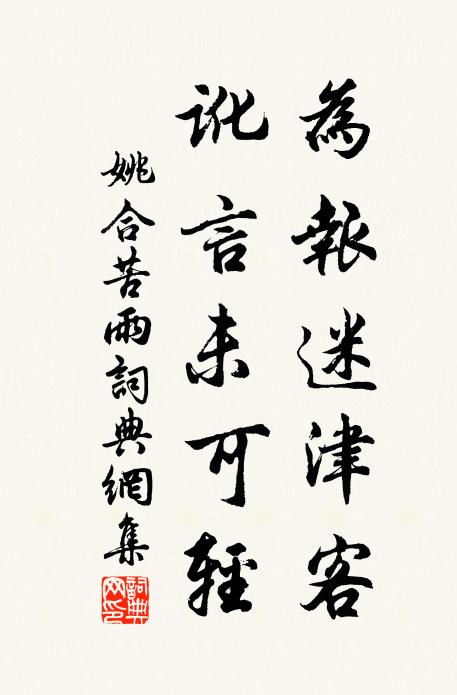 為報迷津客
訛言未可輕
姚合苦雨詞典網集
詞典网印